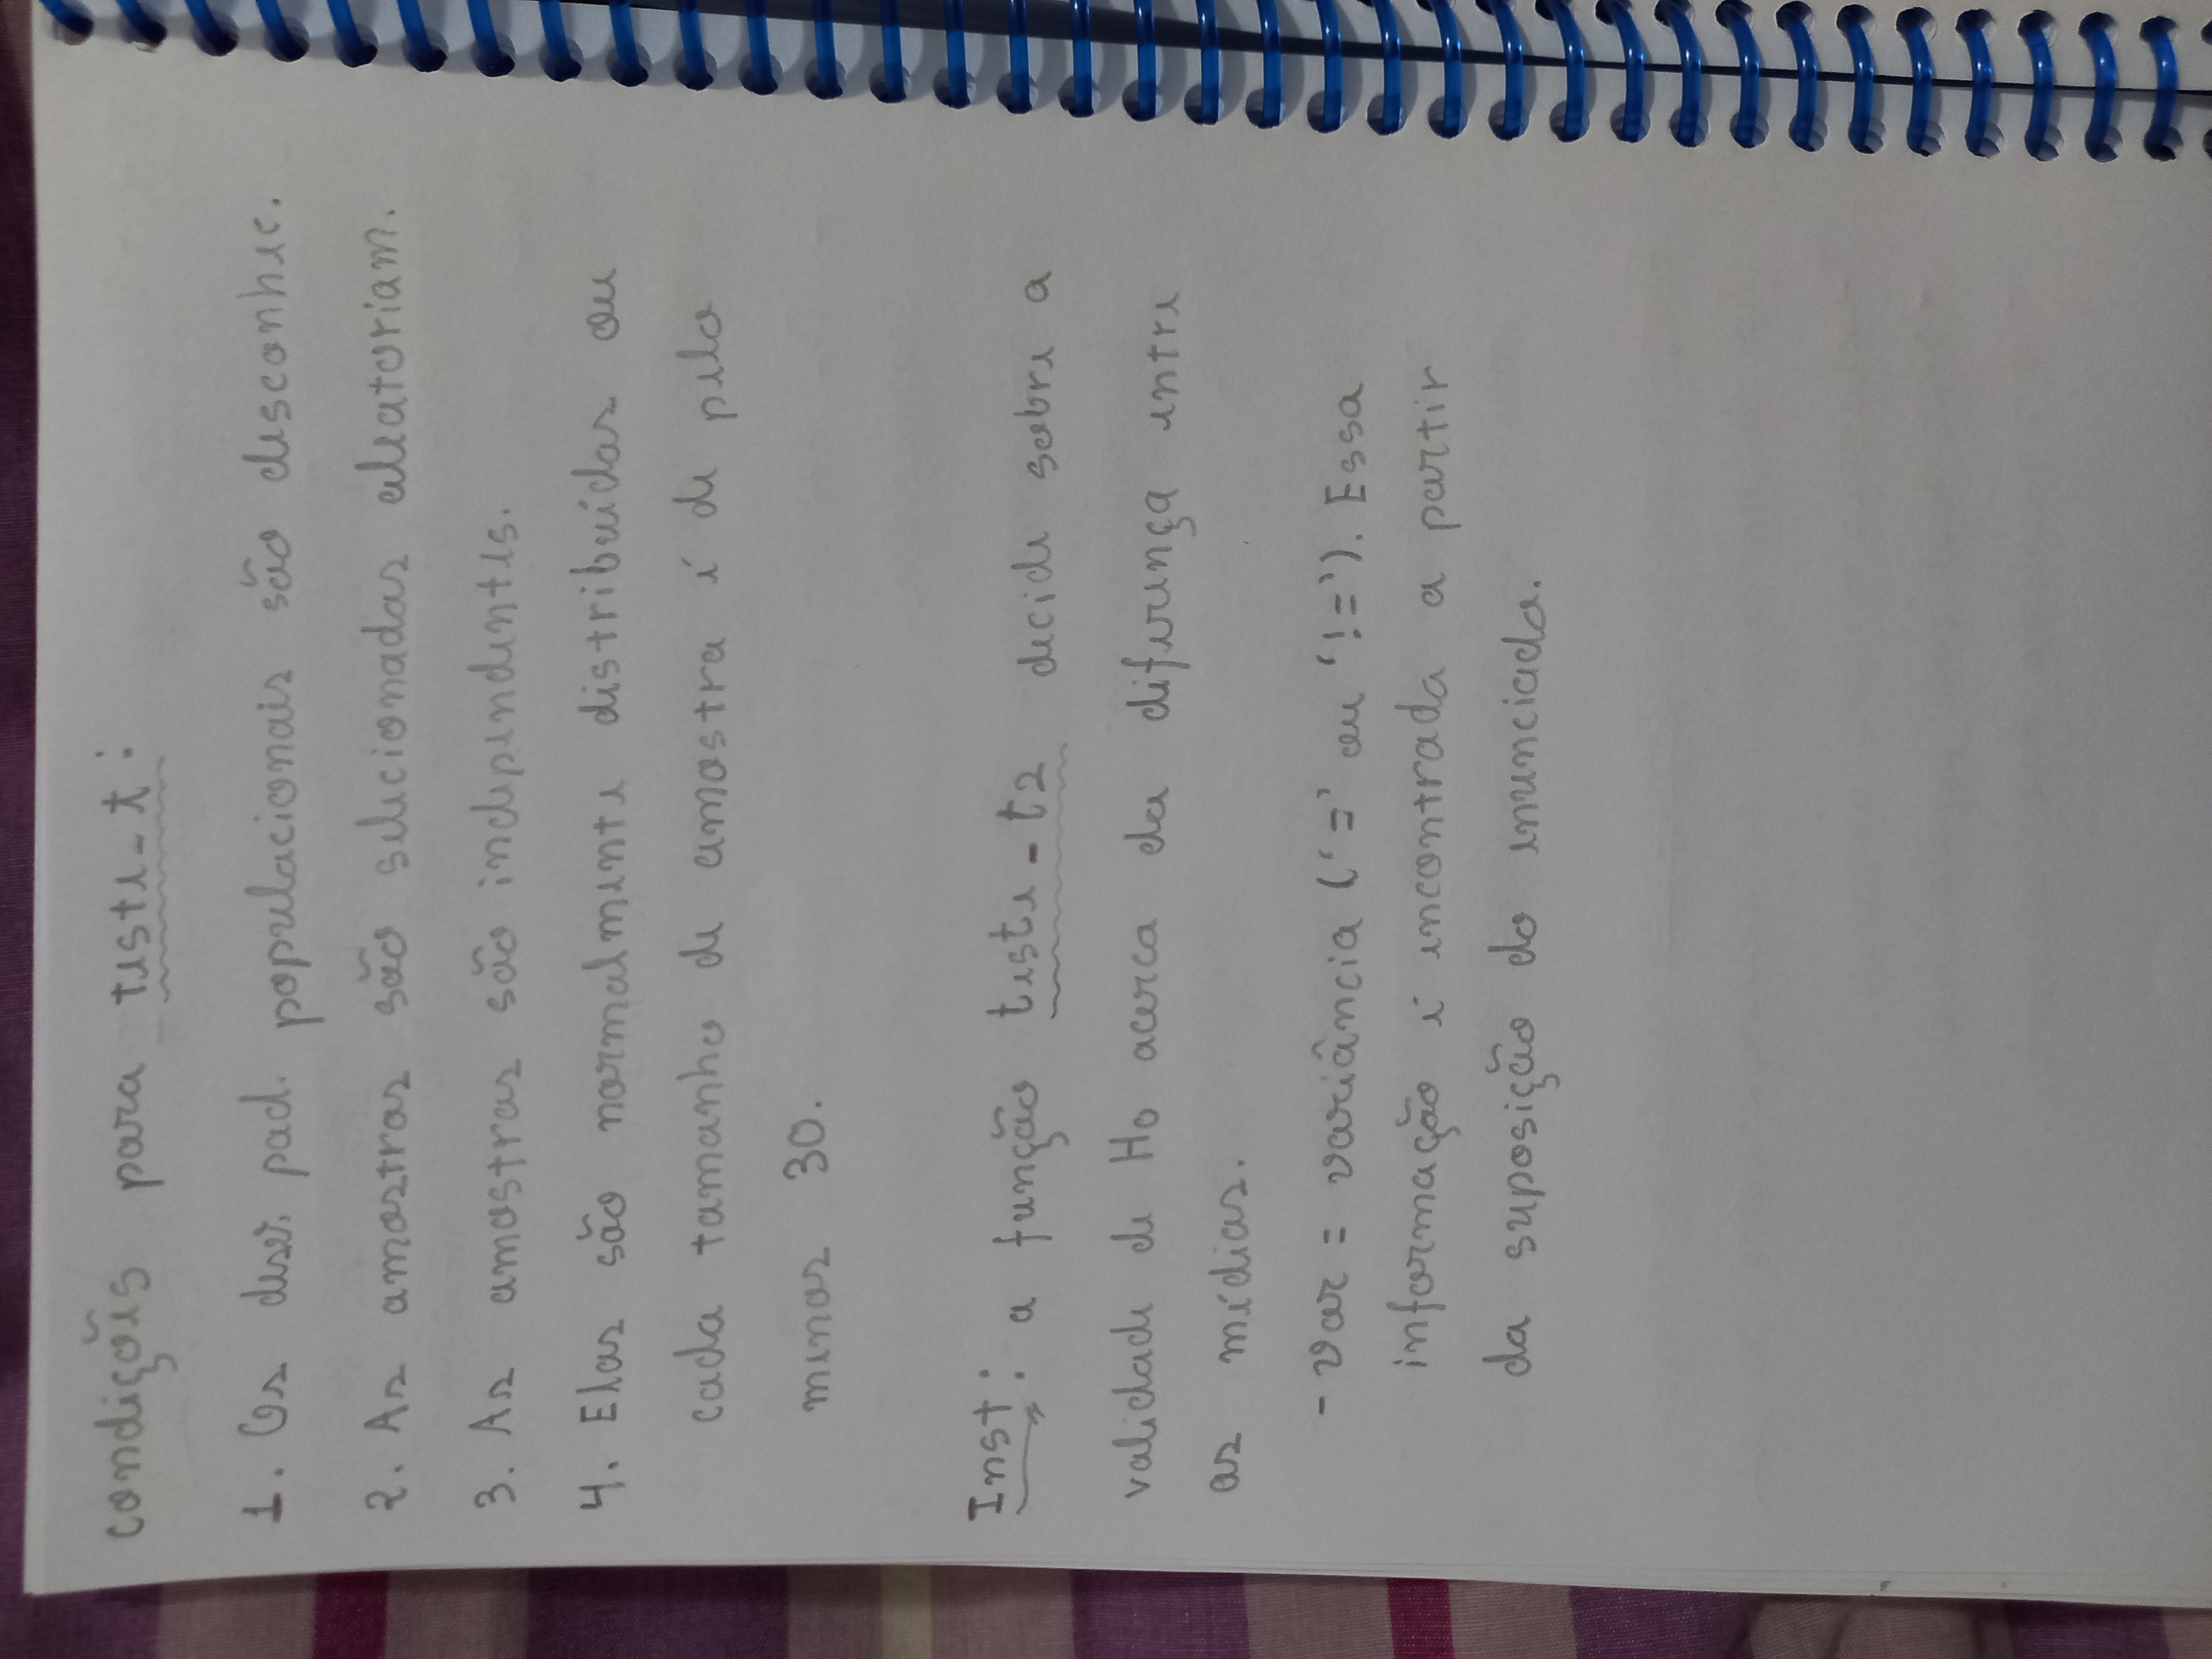 condições para teste_t:
1. Os desv. pad. populacionais são desconhec.
2. As amostras são selecionadas aleatoriam.
3. As amostras são independentes.
4. Elas são normalmente distribuídas ou
cada tamanho de amostra é de pelo
menos 30.
Inst: a função teste_t2 decide sobre a
validade de H0 acerca da diferença entre
as médias.
- var = variância ('=' ou '!='). Essa
informação é encontrada a partir
da suposição do enunciado.